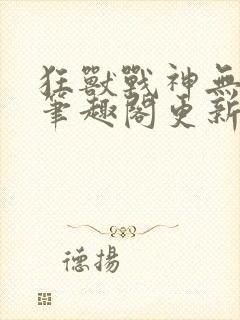 狂獸戰神無
筆趣閣更新
德揚